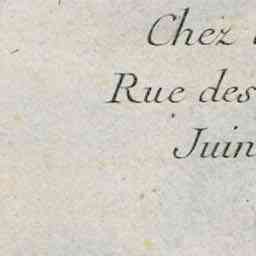 Chez
Rue des
Juin